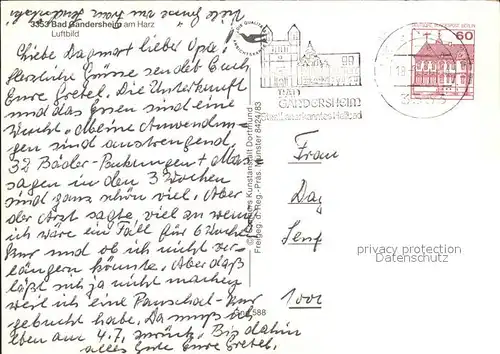 Viele Grüße an Frau
3353 Bad Gandersheim am Harz
Luftbild
Liebe Dagmar + lieber Opa!
Herzliche Grüße sendet Euch
Eure Gretel. Die Unterkunft
und das Essen sind eine
Wucht. Meine Anwendun-
gen sind anstrengend,
32 Bäder-Packungen + Mas-
sagen in den 3 Wochen
sind ganz schön viel. Aber
der Arzt sagte, viel zu wenig
ich wäre ein Fall für 6 Wochen
Kur und ob ich nicht ver-
längern könnte. Aber daß
läßt sich ja nicht machen
weil ich eine Pauschal-Kur
gebucht habe. Da muß ich
eben am 4.7. zurück. Bis dahin
alles Gute Eure Gretel.
Kunstanstalt Dortmund
Freigeg. d. Reg.-Präs. Münster 8424/83
BAD
GANDERSHEIM
Staatl. anerkanntes Heilbad
DEUTSCHE BUNDESPOST BERLIN
60
Frau
Dag
Senf
privacy protection
Datenschutz
1000
588